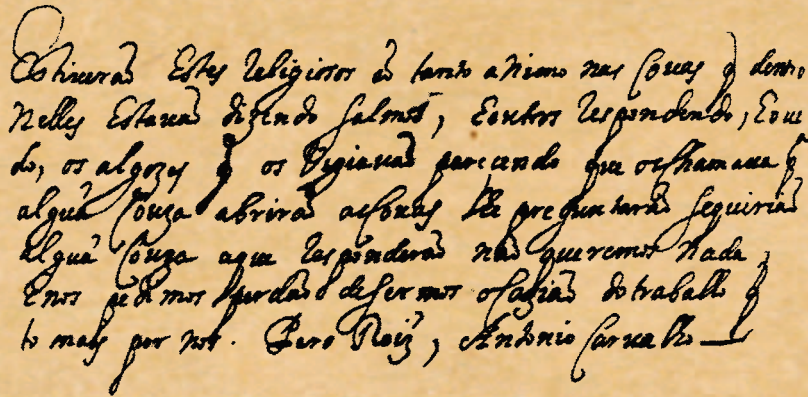 Estiuerão Estes Religiosos cõ tanto animo nas Couas q̃ dentro
Nelles Estauaõ dizendo salmos, Eoutros Respondendo, Eouuin
do, os algozes q̃ os Vigiauaõ parecendo que oschamaua q̃
alguã Couza abriraõ asCouas Eperguntaraõ sequeriaõ
alguã Couza aque Responderaõ naõ queremos Nada,
Enos pedimos perdaõ desermos ocaziaõ dotrabalho q̃
to mais por nos. Pero Roiz, Antonio Carualho